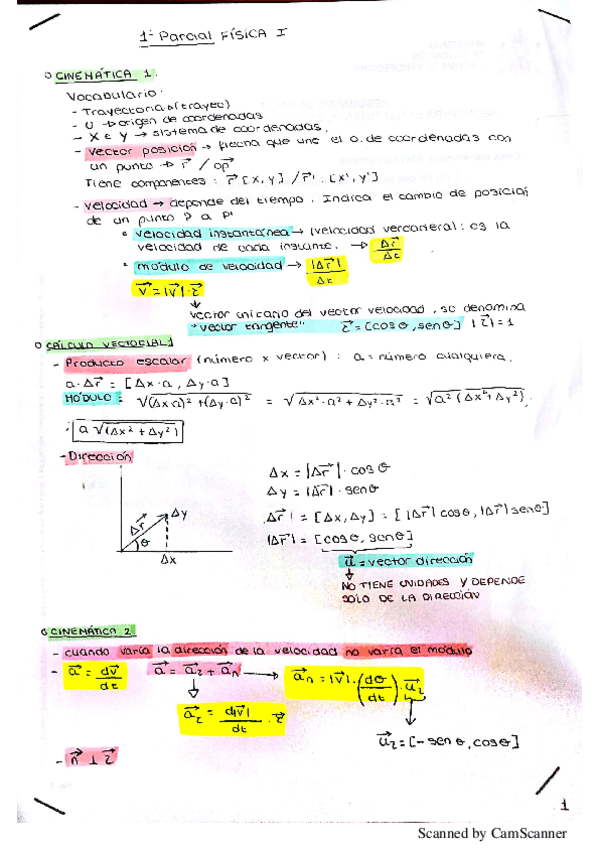 1º Parcial FÍSICA I
CINEMÁTICA 1.
Vocabulario:
- Trayectoria s(trayec)
- U → origen de coordenadas
- X e Y → sistema de coordenadas.
- Vector posición → flecha que une el o. de coordenadas con
un punto → r⃗ / op⃗
Tiene componentes: r⃗ [x, y] / r⃗'. [x', y']
- velocidad → depende del tiempo. Indica el cambio de posición
de un punto P a P'
• velocidad instantánea → (velocidad verdadera): es la
velocidad de cada instante. → Δr⃗/Δt
• módulo de velocidad → |Δr⃗|/Δt
v⃗ = |v⃗|·τ⃗
vector unitario del vector velocidad, se denomina
"vector tangente" τ⃗ = [cos θ, sen θ] |τ⃗| = 1
CÁLCULO VECTORIAL 1
- Producto escalar (número x vector): a = número cualquiera.
a·Δr⃗ = [Δx·a, Δy·a]
MÓDULO: √(Δx·a)² + (Δy·a)² = √Δx²·a² + Δy²·a² = √a²(Δx² + Δy²)
a √(Δx² + Δy²)
- Dirección
Δx = |Δr⃗|·cos θ
Δy = |Δr⃗|·sen θ
Δr⃗ | = [Δx, Δy] = [|Δr⃗| cos θ, |Δr⃗| sen θ]
|Δr⃗| = [cos θ, sen θ]
Δr⃗ Δy
θ
Δx
u⃗ = vector dirección
NO TIENE UNIDADES Y DEPENDE
SOLO DE LA DIRECCIÓN
CINEMÁTICA 2
- cuando varía la dirección de la velocidad no varía el módulo
- a⃗ = dv⃗/dt a⃗ = a⃗τ + a⃗n → a⃗n = |v⃗|·(dθ/dt)·u⃗2
a⃗τ = d|v⃗|/dt · τ⃗
u⃗2 = [-sen θ, cos θ]
- n⃗ ⊥ τ⃗
1
Scanned by CamScanner